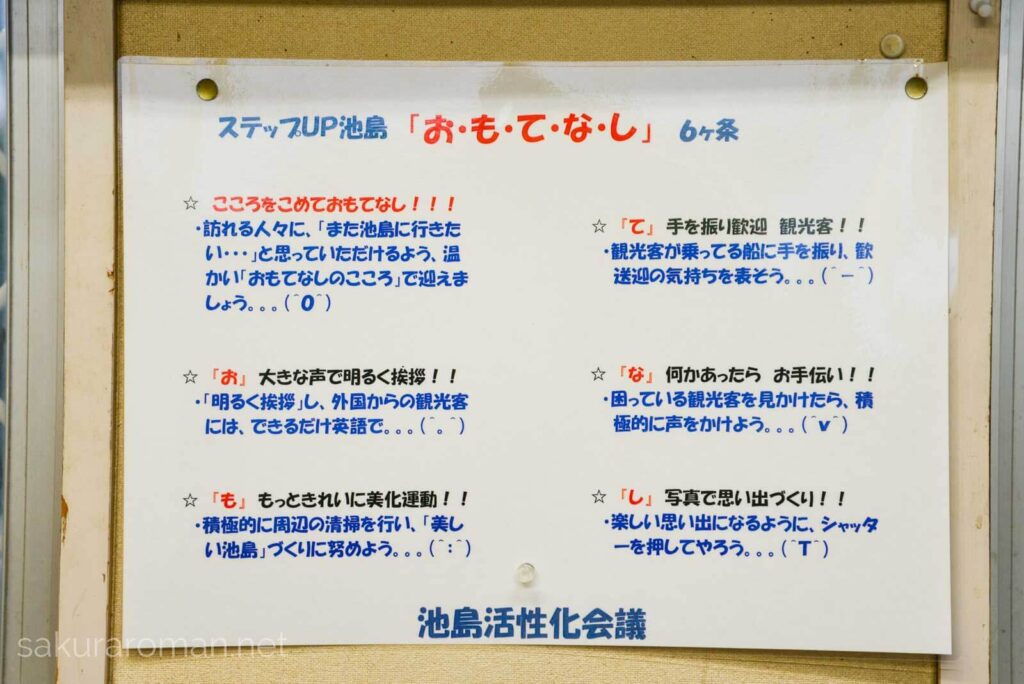 ステップUP池島 「お・も・て・な・し」 6ヶ条
☆ こころをこめておもてなし！！！
・訪れる人々に、「また池島に行きた
い・・・」と思っていただけるよう、温
かい「おもてなしのこころ」で迎えま
しょう。。。(＾O＾)
☆ 『お』 大きな声で明るく挨拶！！
・「明るく挨拶」し、外国からの観光客
には、できるだけ英語で。。。(＾。＾)
☆ 『も』 もっときれいに美化運動！！
・積極的に周辺の清掃を行い、「美し
い池島」づくりに努めよう。。。(＾：＾)
☆ 『て』 手を振り歓迎 観光客！！
・観光客が乗ってる船に手を振り、歓
送迎の気持ちを表そう。。。(＾ー＾)
☆ 『な』 何かあったら お手伝い！！
・困っている観光客を見かけたら、積
極的に声をかけよう。。。(＾v＾)
☆ 『し』 写真で思い出づくり！！
・楽しい思い出になるように、シャッタ
ーを押してやろう。。。(＾T＾)
池島活性化会議
sakuraroman.net